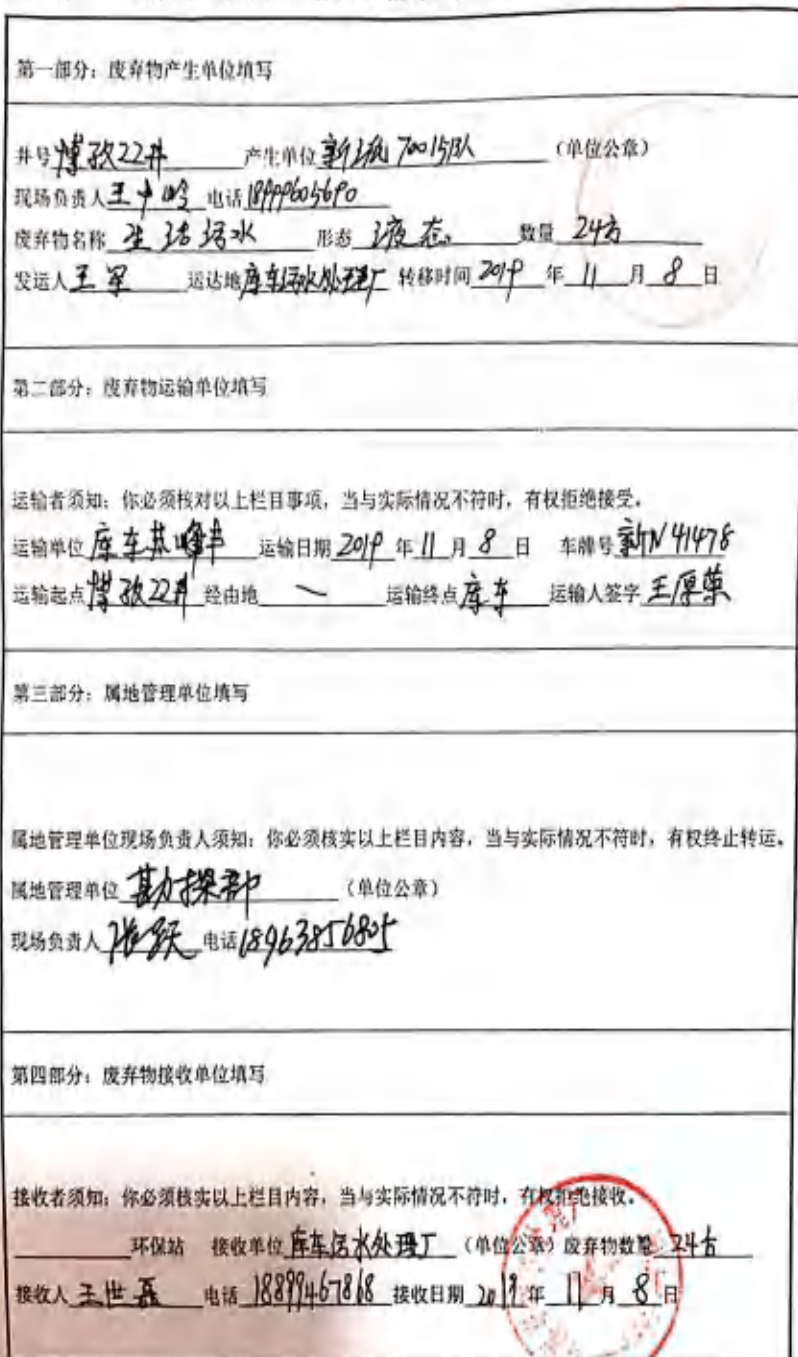 第一部分：废弃物产生单位填写
井号 博孜22井 产生单位 70015队 （单位公章）
现场负责人 王 电话 18999605690
废弃物名称 生活污水 形态 液态 数量 24方
发运人 王军 运达地 库车污水处理厂 转移时间 2019 年 11 月 8 日
第二部分：废弃物运输单位填写
运输者须知：你必须核对以上栏目事项，当与实际情况不符时，有权拒绝接受。
运输单位 库车 运输日期 2019 年 11 月 8 日 车牌号 新N41478
运输起点 博孜22井 经由地 运输终点 库车 运输人签字 王厚荣
第三部分：属地管理单位填写
属地管理单位现场负责人须知：你必须核实以上栏目内容，当与实际情况不符时，有权终止转运。
属地管理单位 勘探部 （单位公章）
现场负责人 张跃 电话 18963856805
第四部分：废弃物接收单位填写
接收者须知：你必须核实以上栏目内容，当与实际情况不符时，有权拒绝接收。
环保站 接收单位 库车污水处理厂 （单位公章）废弃物数量 24方
接收人 王世磊 电话 18899467868 接收日期 2019 年 11 月 8 日